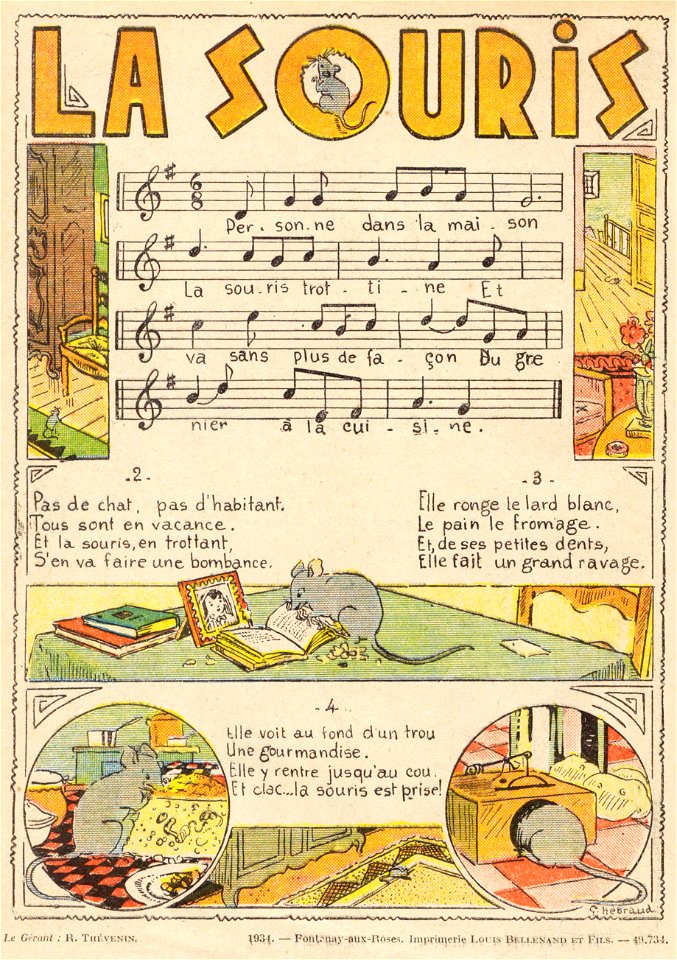 LA SOURIS
6
8
Per-son-ne dans la mai-son
La sou-ris trot-ti-ne Et
va sans plus de fa-çon Du gre
nier à la cui-si-ne.
-2-
Pas de chat, pas d'habitant.
Tous sont en vacance.
Et la souris, en trottant,
S'en va faire une bombance.
-3-
Elle ronge le lard blanc,
Le pain le fromage.
Et, de ses petites dents,
Elle fait un grand ravage.
-4-
Elle voit au fond d'un trou
Une gourmandise.
Elle y rentre jusqu'au cou.
Et clac...la souris est prise!
G. Hébraud.
Le Gérant : R. THÉVENIN. 1934. — Fontenay-aux-Roses. Imprimerie LOUIS BELLENAND ET FILS. — 49.734.